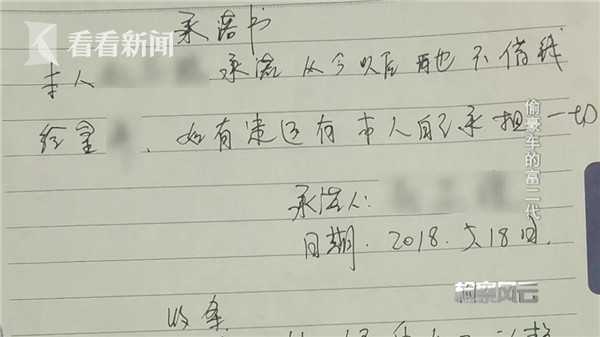 看看新闻
承诺书
本人 承诺从今以后再也不借钱
给 、如有违返有本人自己承担一切
承诺人:
日期. 2018.5月18日.
收条
偷豪车的富二代
检察风云